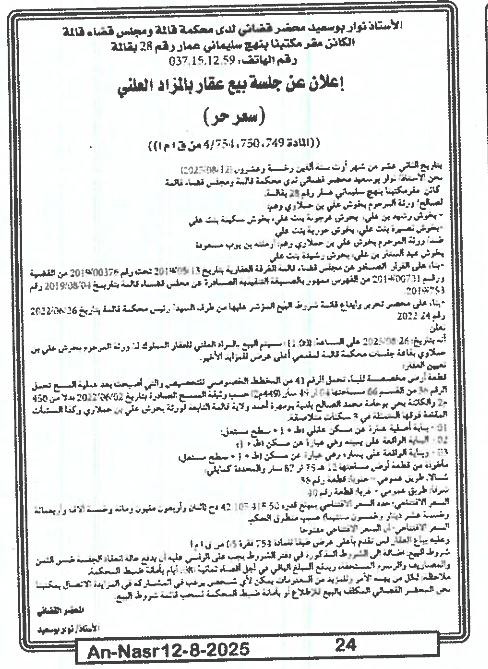 الأستاذ نوار بوسعيد محضر قضائي لدى محكمة قالمة ومجلس قضاء قالمة
الكائن مقر مكتبنا بنهج سليماني عمار رقم 28 بقالمة
رقم الهاتف: 037.15.12.59
إعلان عن جلسة بيع عقار بالمزاد العلني
(سعر حر)
((المادة 749، 750، 4/754 من ق ا م ا))
بتاريخ الثاني عشر من شهر أوت سنة ألفين وخمسة وعشرون (2025/08/12)
نحن الأستاذ: نوار بوسعيد محضر قضائي لدى محكمة قالمة ومجلس قضاء قالمة
كائن مقر مكتبنا بنهج سليماني عمار رقم 28 بقالمة.
لصالح: ورثة المرحوم بخوش علي بن حملاوي وهم:
- بخوش رشيد بن علي، بخوش بنت علي، بخوش سكينة بنت علي
- بخوش نصيرة بنت علي، بخوش حورية بنت علي
ضد: ورثة المرحوم بخوش علي بن حملاوي وهم: أرملته بن يوب مسعودة
بخوش عبد بن علي، بخوش رشيدة بنت علي
-بناء على القرار الصادر عن مجلس قضاء قالمة الغرفة العقارية بتاريخ 2019/05/13 تحت رقم 2019/00376 من القضية
ورقم 2019/00731 من الفهرس ممهور بالصيغة التنفيذية الصادرة عن مجلس قضاء قالمة بتاريخ 2019/08/04 رقم
2019/753
-بناء على محضر تحرير وإيداع قائمة شروط البيع المؤشر عليها من طرف السيد/ رئيس محكمة قالمة بتاريخ 2022/06/26
رقم 2022/24
نعلن
أنه بتاريخ: 2025/08/26 على الساعة: (11:00) سيتم البيع بالمزاد العلني للعقار المملوك لـ: ورثة المرحوم بخوش علي بن
حملاوي بقاعة جلسات محكمة قالمة لمقدمي أعلى عرض للمزايد الأخير.
تعيين العقار:
قطعة أرض مخصصة للبناء تحمل الرقم 41 من المخطط الخصوصي للتخصيص والتي أصبحت بعد عملية المسح تحمل
الرقم 36 من القسم 66 مساحتها 04 آر 49 سآر (449م2) حسب وثيقة المسح الصادرة بتاريخ 2022/06/02 بدلا من 450
م2 والكائنة بحي بوجامة محمد الصالح بلدية بومهرة أحمد ولاية قالمة التابعة لورثة بخوش علي بن حملاوي وكذا البنايات
المقامة فوقها المتمثلة في 3 سكنات متلاصقة.
01- بناية أصلية عبارة عن مسكن عائلي (ط + 1 + سطح مستغل)
02- البناية الواقعة على يمينه وهي عبارة عن مسكن (ط + 1)
03- وبناية الواقعة على يساره وهي عبارة عن مسكن (ط + 1 + سطح مستغل)
مأخوذة من قطعة أرض مساحتها 12 هـ 75 آر 87 سآر والمحددة كمايلي:
شمالا: طريق عمومي - جنوبا: قطعة رقم 38
شرقا: طريق عمومي - غربا: قطعة رقم 40
السعر الافتتاحي: حدد السعر الافتتاحي بمبلغ قدره 42.105.415.50 دج (اثنان وأربعون مليون ومائة وخمسة آلاف وأربعمائة
وخمسة عشر دينار وخمسون سنتيما) حسب منطوق الحكم.
السعر الافتتاحي: أن السعر الافتتاحي مفتوحا
وعليه يباع العقار لمن تقدم بأعلى عرض طبقا للمادة 754 فقرة 05 من ق ا م ا
شروط البيع: إضافة إلى الشروط المذكورة في دفتر الشروط يجب على الراسي عليه أن يدفع حالة انعقاد الجلسة خمس الثمن
والمصاريف والرسوم المستحقة، ويدفع المبلغ الباقي في أجل أقصاه ثمانية (08) أيام بأمانة ضبط المحكمة.
ملاحظة: لكل من يهمه الأمر وللمزيد من المعلومات يمكن لأي شخص يرغب في المشاركة في المزايدة الاتصال بمكتبنا
نحن المحضر القضائي المكلف بالبيع للإطلاع أو بأمانة ضبط المحكمة لسحب قائمة شروط البيع.
المحضر القضائي
الأستاذ/ نوار بوسعيد
An-Nasr12-8-2025 24